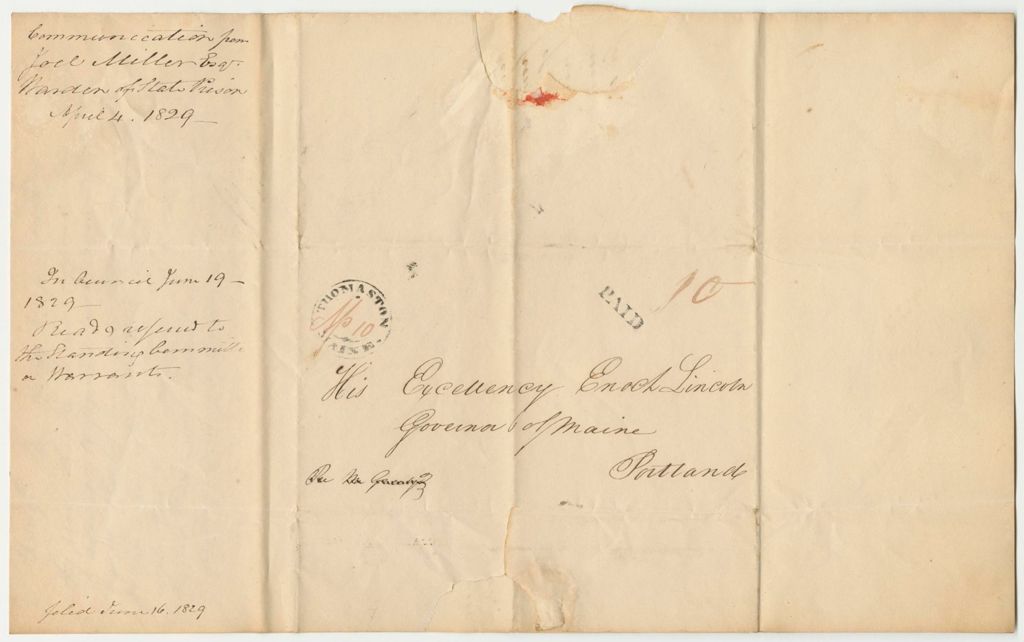 Communication from
Joel Miller Esqr.
Warden of State Prison
April 4. 1829—
In Council June 19—
1829—
Read & referred to
the Standing Committee
on Warrants.
filed June 16. 1829
THOMASTON
Ap 10
MAINE.
PAID
10
His Excellency Enoch Lincoln
Governor of Maine
Portland
Per Mr